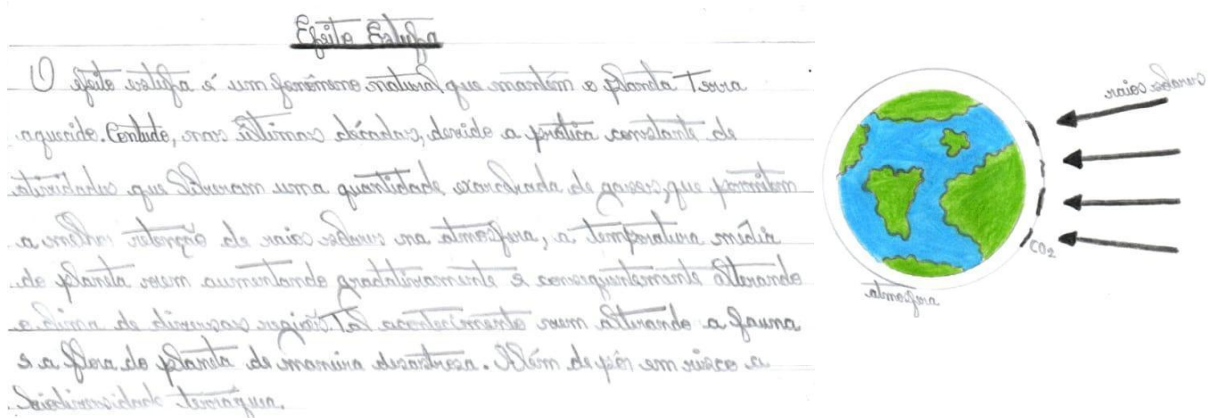 Efeito Estufa
O efeito estufa é um fenômeno natural que mantém o planeta Terra
aquecido. Contudo, nas últimas décadas, devido a prática constante de
atividades que liberam uma quantidade exacerbada de gases, que permitem
a retenção de raios solares na atmosfera, a temperatura média
do planeta vem aumentando gradativamente e consequentemente alterando
o clima de diversas regiões. Tal acontecimento vem alterando a fauna
e a flora do planeta de maneira desastrosa. Além de pôr em risco a
biodiversidade terráquea.
raios solares
CO2
atmosfera